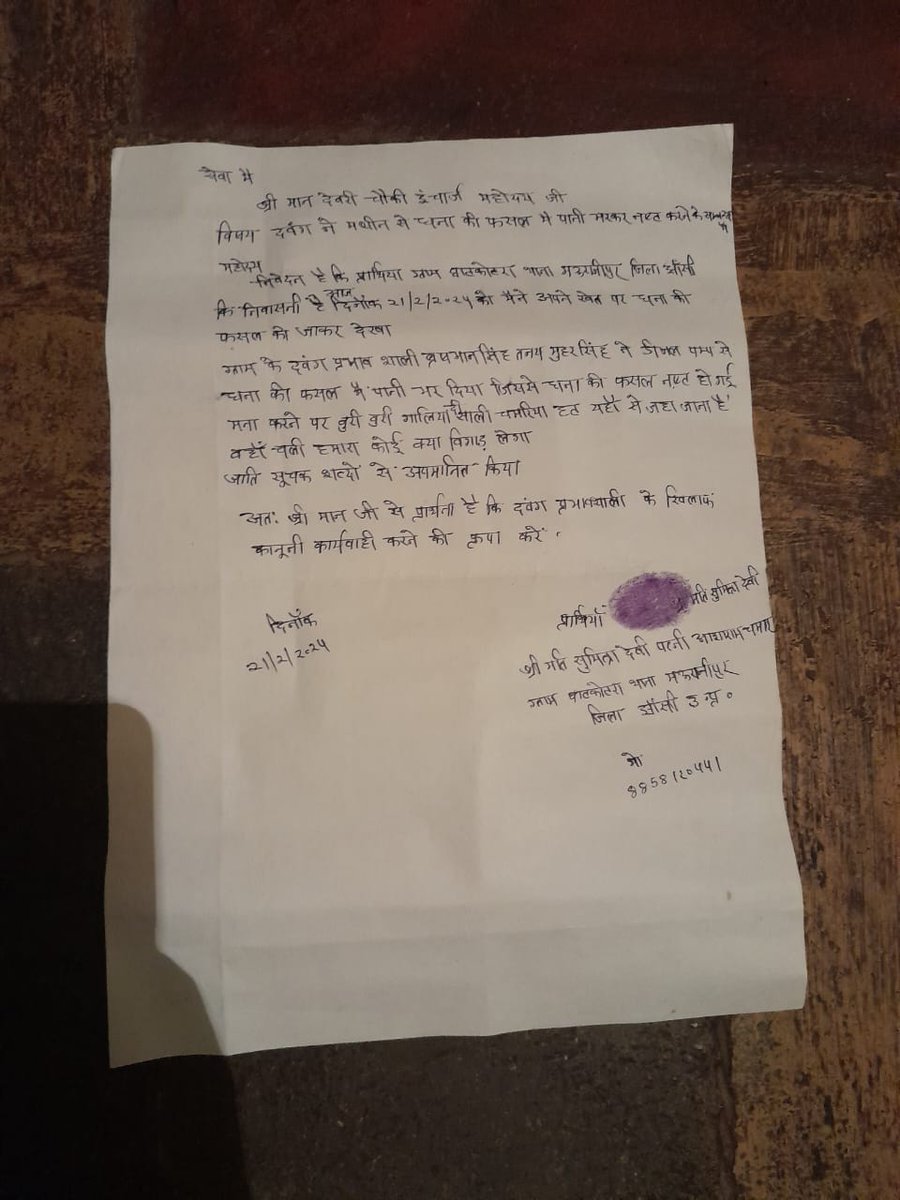 सेवा मै
श्री मान देवरी चौकी इंचार्ज महोदय जी
विषय दवंग ने मशीन से चना की फसल मे पानी भरकर नष्ट करने के सम्बन्ध मे
महोदय
निवेदन है कि प्रार्थिया ग्राम घाटकोटरा थाना मऊरानीपुर जिला झाँसी
कि निवासनी है आज दिनाँक 21/2/2024 को मैने अपने खेत पर चना की
फसल को जाकर देखा
ग्राम के दवंग प्रभाव शाली तनय ने डीजल पम्प से
चना की फसल मै पानी भर दिया जिससे चना की फसल नष्ट हो गई
मना करने पर बुरी बुरी गालियाँ दी साली चमरिया हट यहाँ से जहा जाना है
वहाँ चली हमारा कोई क्या विगाड़ लेगा
जाति सूचक शव्दो से अपमानित किया
अतः श्री मान जी से प्रार्थना है कि दवंग प्रभावशाली के खिलाफ
कानूनी कार्यवाही करने की कृपा करें
दिनाँक
21/2/2024
प्रार्थिया मति सुमित्रा देवी
श्री मति सुमित्रा देवी पत्नी आशाराम चमार
ग्राम घाटकोटरा थाना मऊरानीपुर
जिला झाँसी उ॰प्र॰
मो
8858120441